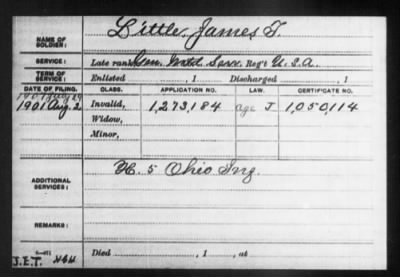 NAME OF SOLDIER: Little, James T.
SERVICE: Late rank Gen. Mtd Serv. Reg't U.S.A
TERM OF SERVICE: Enlisted , 1 Discharged , 1
DATE OF FILING. CLASS. APPLICATION NO. LAW. CERTIFICATE NO.
1901 Aug. 2 Invalid, 1,273,184 age J 1,050,114
Widow,
Minor,
ADDITIONAL SERVICES: H. 5 Ohio Inf
REMARKS:
Died , 1 , at
J.E.T.